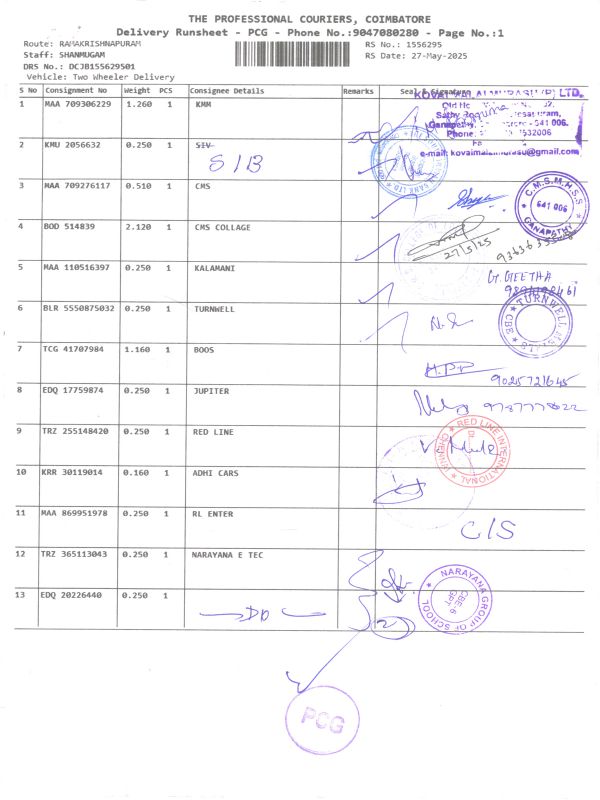 THE PROFESSIONAL COURIERS, COIMBATORE
Delivery Runsheet - PCG - Phone No.:9047080280 - Page No.:1
Route: RAMAKRISHNAPURAM
RS No.: 1556295
Staff: SHANMUGAM
RS Date: 27-May-2025
DRS No.: DCJB155629501
Vehicle: Two Wheeler Delivery
S No Consignment No Weight PCS Consignee Details Remarks Seal & Signature
1 MAA 709306229 1.260 1 KMM
KOVAI MALAI MURASU (P) LTD.
Sathy
Ganapathy, - 541 006.
Phone:
e-mail: kovaimalaimurasu@gmail.com
2 KMU 2056632 0.250 1 SIV
SIB
BANK LTD.
3 MAA 709276117 0.510 1 CMS
C.M.S.M.H.S.S
641 006
GANAPATHY
4 BOD 514839 2.120 1 CMS COLLAGE
27/5/25
5 MAA 110516397 0.250 1 KALAMANI
G. GEETHA
6 BLR 5550875032 0.250 1 TURNWELL
TURNWELL
CBE
7 TCG 41707984 1.160 1 BOOS
9025721645
8 EDQ 17759874 0.250 1 JUPITER
9787778022
9 TRZ 255148420 0.250 1 RED LINE
RED LINE INTERNATIONAL
CHENNAI
10 KRR 30119014 0.160 1 ADHI CARS
11 MAA 869951978 0.250 1 RL ENTER
C/S
12 TRZ 365113043 0.250 1 NARAYANA E TEC
NARAYANA GROUP OF SCHOOL
CBE-6
GPT
13 EDQ 20226440 0.250 1
DD
2
PCG